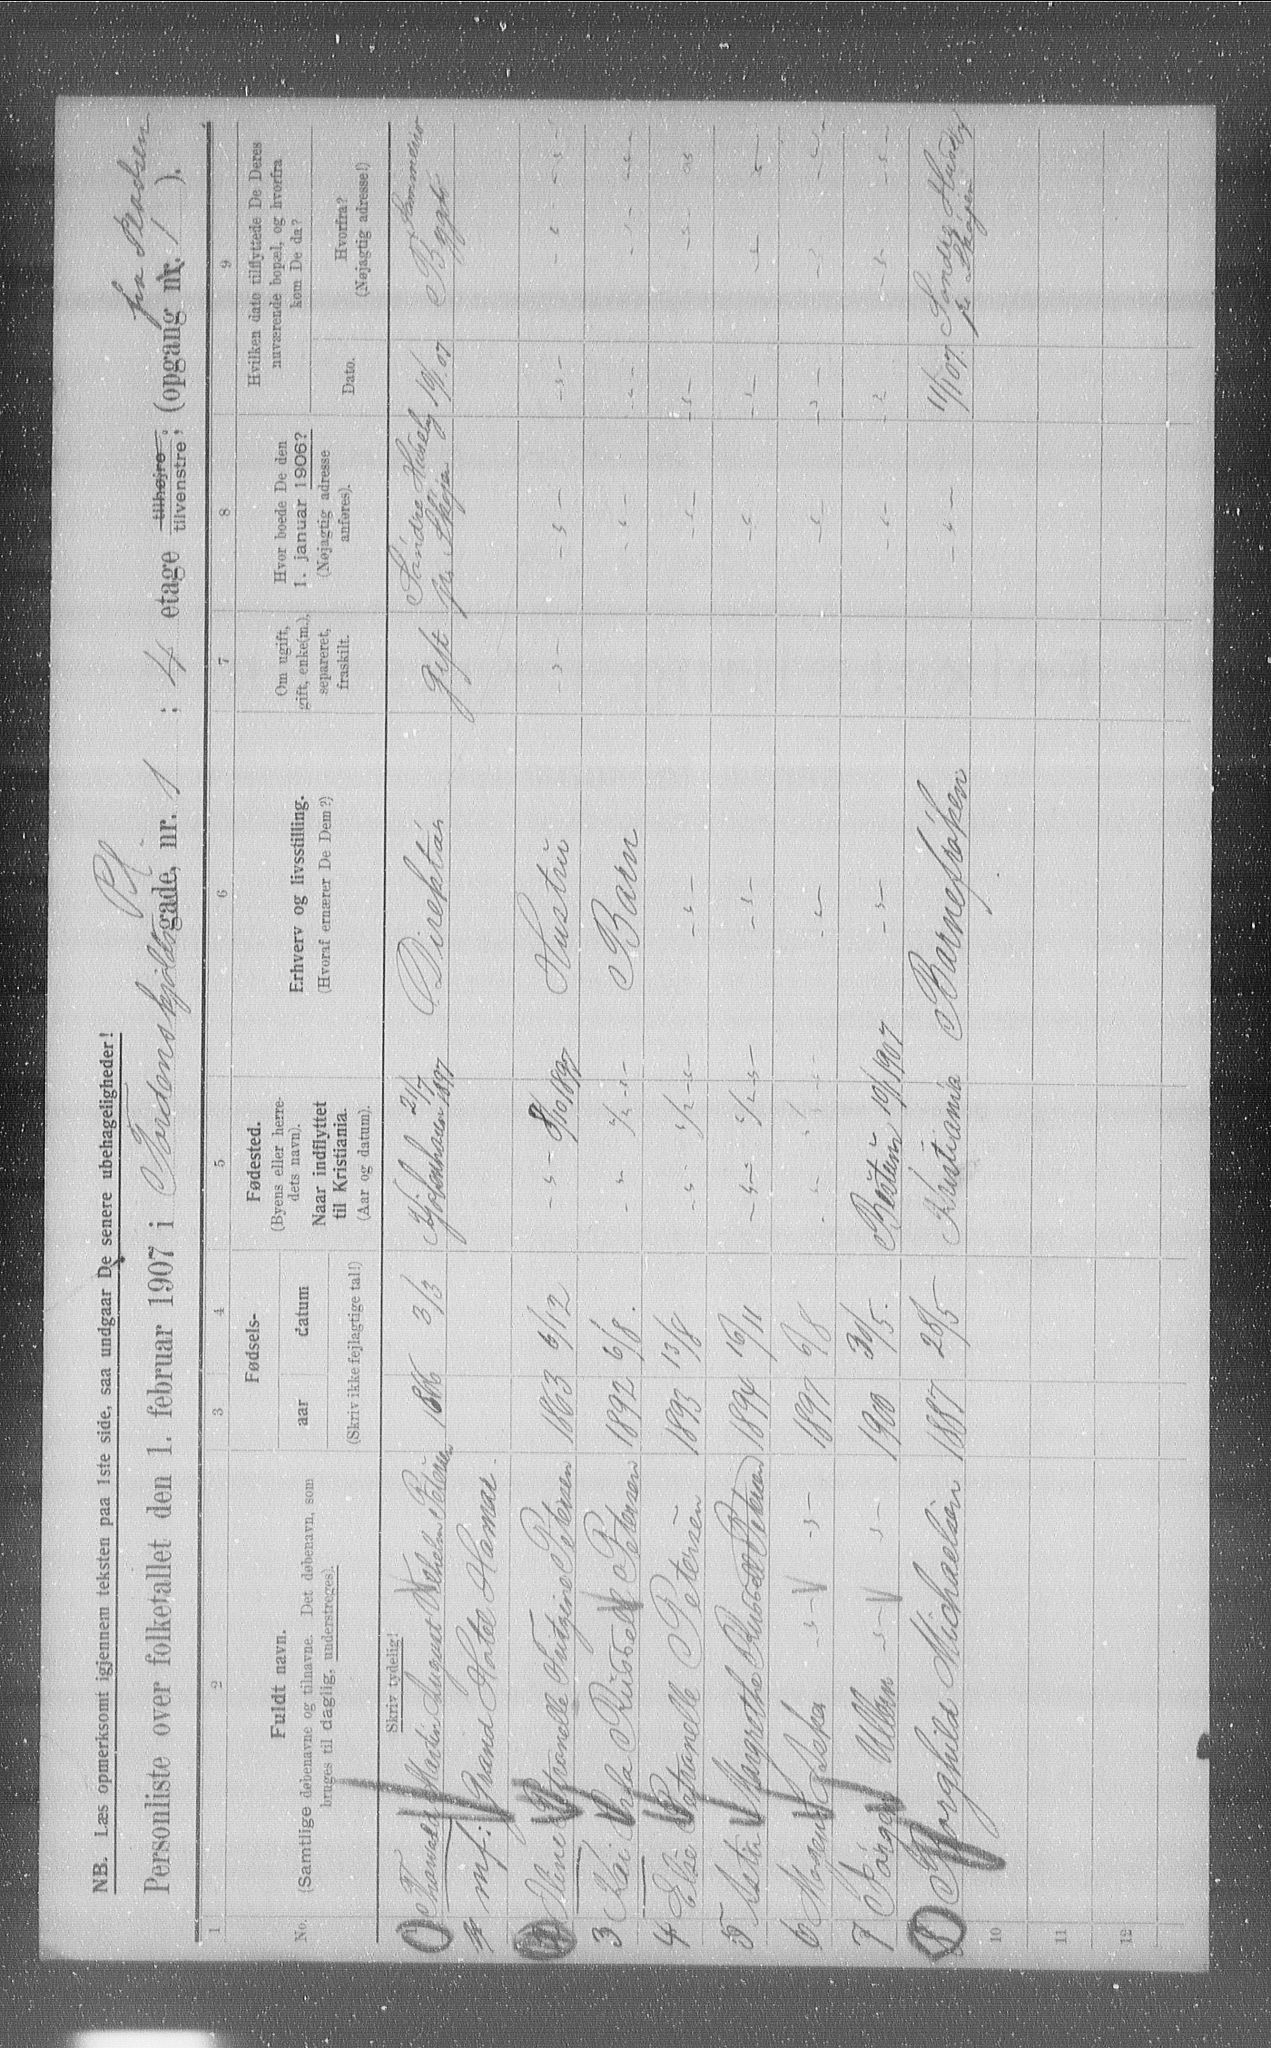 NB. Læs opmerksomt igjennem teksten paa 1ste side, saa undgaar De senere ubehageligheder!
Personliste over folketallet den 1. februar 1907 i Tordenskjolds gade, nr. 1 ; 4 etage tilhøjre; tilvenstre; (opgang nr. / ).
Pl.
fra Pladsen
1 2 3 4 5 6 7 8 9
No.
Fuldt navn.
(Samtlige døbenavne og tilnavne. Det døbenavn, som
bruges til daglig, understreges).
Skriv tydelig!
Fødsels-
aar datum
(Skriv ikke fejlagtige tal!)
Fødested.
(Byens eller herre-
dets navn).
Naar indflyttet
til Kristiania.
(Aar og datum).
Erhverv og livsstilling.
(Hvoraf ernærer De Dem?)
Om ugift,
gift, enke(m.),
separeret,
fraskilt.
Hvor boede De den
1. januar 1906?
(Nøjagtig adresse
anføres).
Hvilken dato tilflyttede De Deres
nuværende bopæl, og hvorfra
kom De da?
Dato.
Hvorfra?
(Nøjagtig adresse!)
1 Martin August Vilhelm Petersen 1866 3/3 Kjøbenhavn 21/7 1897 Direktør gift Søndre Huseby pr. Skøjen 19/1 07 Bygdø
mf: Grand Hotel Hamar.
2 Petersen 1863 6/12 - " - 8/10 1897 Hustru - " - - " - - " - - " -
3 Kai Russell Petersen 1892 6/8. - " - " - Barn - " - - " - - " -
4 Else Petersen 1893 13/8 - " - " - - " - - " - - " - - " -
5 Margrethe Russell Petersen 1894 16/11 - " - " - - " - - " - - " - - " -
6 Mogens - " - - " - 1897 6/8 - " - " - - " - - " - - " - - " -
7 - " - - " - 1900 30/5. Bestum 10/1 1907 - " - - " - - " - - " -
8 Borghild Michaelsen 1887 28/5 Kristiania Barnefrøken - " - 11/1 07. Søndre Huseby pr. Skøjen
10
11
12